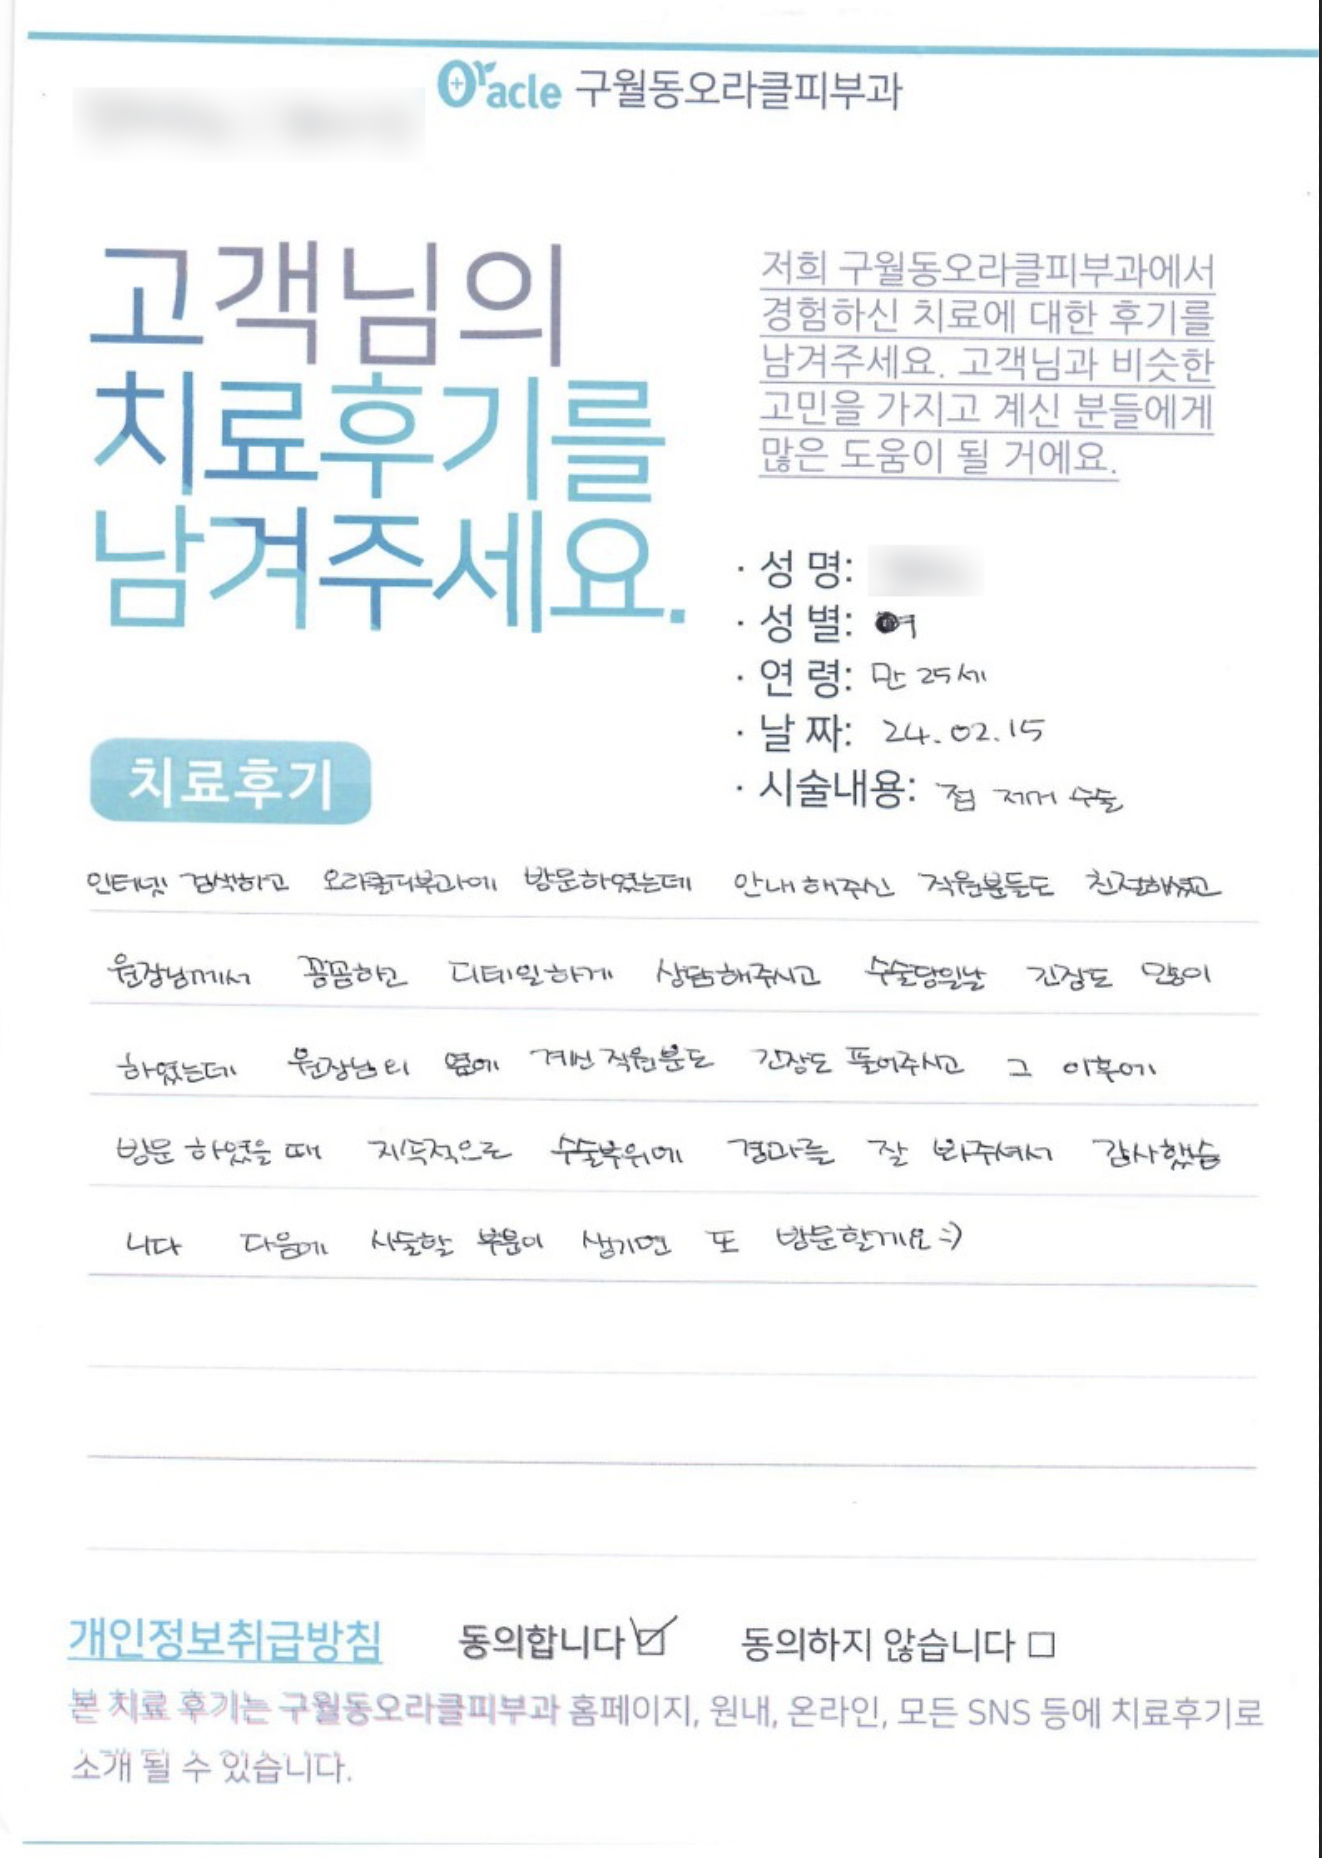 Oracle 구월동오라클피부과
고객님의
치료후기를
남겨주세요.
저희 구월동오라클피부과에서
경험하신 치료에 대한 후기를
남겨주세요. 고객님과 비슷한
고민을 가지고 계신 분들에게
많은 도움이 될 거에요.
· 성 명:
· 성 별: 여
· 연 령: 만 25세
· 날 짜: 24.02.15
· 시술내용: 점 제거 수술
치료후기
인터넷 검색하고 오라클피부과에 방문하였는데 안내해주신 직원분들도 친절하셨고
원장님께서 꼼꼼하고 디테일하게 상담해주시고 수술당일날 긴장도 많이
하였는데 원장님의 옆에 계신 직원분도 긴장도 풀어주시고 그 이후에
방문 하였을 때 지속적으로 수술부위에 경과를 잘 봐주셔서 감사했습
니다 다음에 시술할 부분이 생기면 또 방문할게요 :)
개인정보취급방침 동의합니다 ☑ 동의하지 않습니다 □
본 치료 후기는 구월동오라클피부과 홈페이지, 원내, 온라인, 모든 SNS 등에 치료후기로
소개 될 수 있습니다.